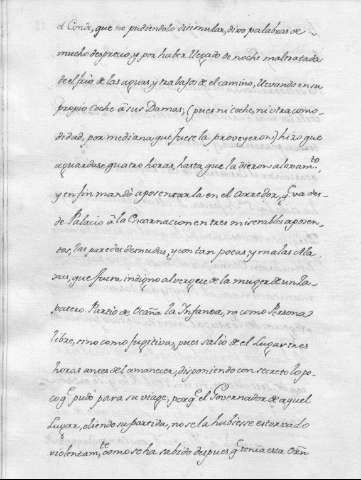 el Conde, que no pudiendolo disimular, dixo palabras de
mucho desprecio, y por haber llegado de noche maltratada
de el frio de las aguas, y trabajos de el camino, llevando en su
propio coche à sus Damas, (pues ni coche, ni otra como
didad, por mediana que fuese la proveyeron) hizo que
aguardase quatro horas, hasta que la dieron aloxam.to
y en fin mandò aposentarla en el corredor, q va des
de Palacio à la Encarnacion en tres miserables aposen
tos, las paredes desnudas, y con tan pocas y malas
que fuera indigno alvergue de la muger de un Za
patero. Partio de Ocaña la Infanta, no como Persona
libre, sino como fugitiva, pues saliò de el Lugar tres
horas antes del amanecer, disponiendo con secreto lo po
co q pudo para su viage, porq el Governador de aquel
Lugar, oliendo su partida, no se la hubiese estorvado
violentam.te como se ha sabido despues q tenia esta Orn